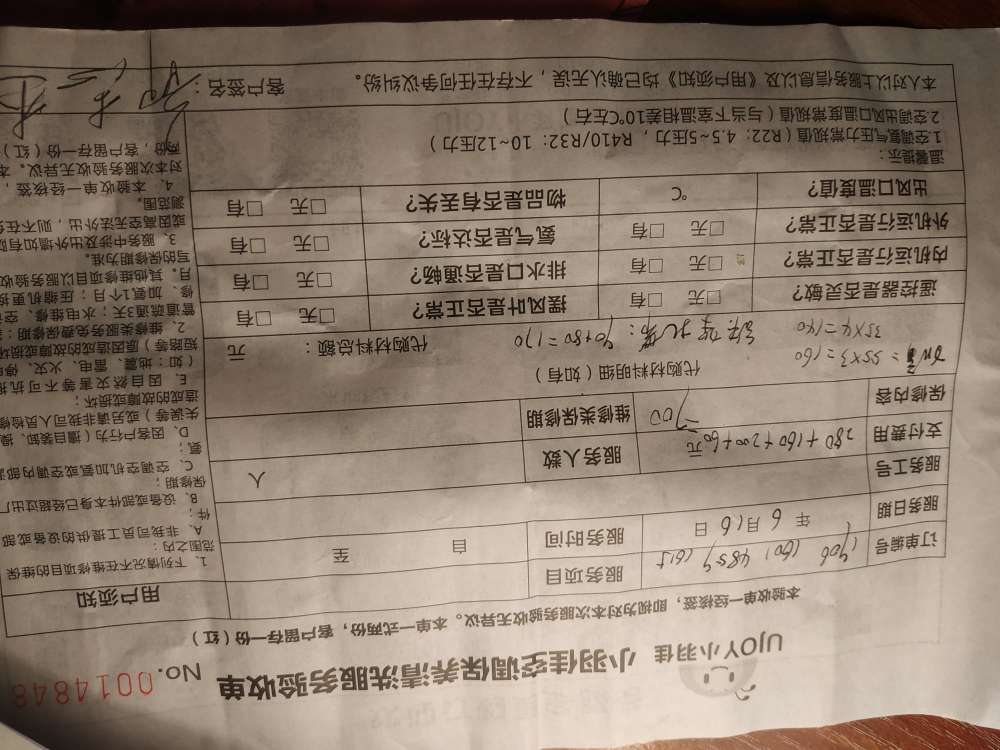 UJOY小羽佳 小羽佳空调保养清洗服务验收单 No. 0014848
本验收单一经核签，即视为对本次服务验收无异议。本单一式两份，客户留存一份（红）
订单编号
服务项目
服务日期 年 6 月 16 日
服务时间 自 至
服务工号
服务人数 人
支付费用 280+160+200+60元
700
维修类保修期
保修内容
代购材料明细（如有）
35X4=140
90+80=170
代购材料总额： 元
遥控器是否灵敏？ □无 □有
摆风叶是否正常？ □无 □有
内机运行是否正常？ □无 □有
排水口是否通畅？ □无 □有
外机运行是否正常？ □无 □有
氨气是否达标？ □无 □有
出风口温度值？ ℃
物品是否有丢失？ □无 □有
温馨提示：
1.空调氨气压力常规值（R22：4.5~5压力，R410/R32：10~12压力）
2.空调出风口温度常规值（与当下室温相差10℃左右）
本人对以上服务信息以及《用户须知》均已确认无误，不存在任何争议纠纷。 客户签名：
用户须知
1、下列情况不在维修项目的维保
范围之内：
A、非我司员工提供的设备或部
件；
B、设备或部件本身已经超过出厂
保修期；
C、空调空机加氨或空调内部
氨；
D、因客户行为（擅自装卸、操
失误等）或另请非我司人员检修
造成的故障或损坏；
E、因自然灾害等不可抗
（如：地震、雷电、火灾、
短路等）原因造成的故障或损坏
2、维修类服务免费保修期：
管道疏通3天；水电维修、空
修、加氨1个月；压缩机更换
月。其他维修项目以服务验收
写的保修期为准。
3、服务中涉及出外墙如有
或因高空无法外出，则不在
测范围。
4、本验收单一经核签，
对本次服务验收无异议。本
两份，客户留存一份（红）